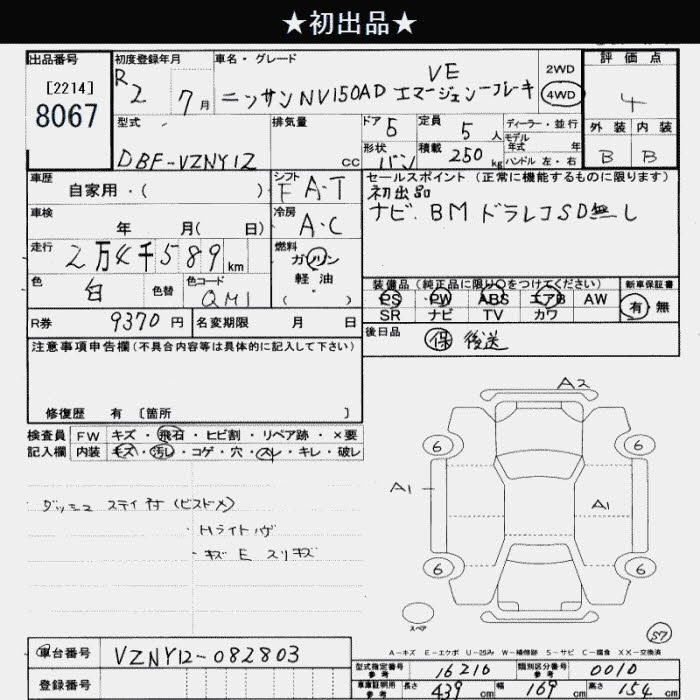 ★初出品★
出品番号
[2214]
8067
初度登録年月
R2 7月
車名・グレード
VE
ニッサンNV150AD エマージェンーブレーキ
2WD
4WD
評価点
4
外装 内装
B B
型式
DBF-VZNY12
排気量
cc
ドア 5
定員 5人
形状 バン
積載 250 kg
ディーラー・並行
モデル年式 年
ハンドル 左・右
車歴
自家用・( )
シフト
FA・T
セールスポイント (正常に機能するものに限ります)
初出品
ナビ、BM ドラレコSD無し
車検
年 月( 日)
冷房
A・C
走行
2万4千589km
燃料
ガソリン
軽油
( )
色
白
色替
色コード
QM1
装備品 (純正品に限り○をつけてください)
PS PW ABS エアB AW
SR ナビ TV カワ
新車保証書
有・無
R券
9370円
名変期限 月 日
後日品
保 後送
注意事項申告欄(不具合内容等は具体的に記入して下さい)
修復歴 有 [箇所 ]
検査員記入欄
FW キズ・飛石・ヒビ割・リペア跡・×要
内装 キズ・汚レ・コゲ・穴・スレ・キレ・破レ
ダッシュ ステイ付(ビスドメ)
・Hライトハゲ
・キズ E スリキズ
A2
6 6
A1 A1
6 6
スペア
57
A-キズ E-エクボ U-凹み W-補修跡 S-サビ C-腐食 XX-交換済
車台番号
VZNY12-082803
登録番号
型式指定番号 参考
16216
類別区分番号 参考
0010
車庫証明用 参考
長さ 439 cm 幅 169 cm 高さ 154 cm